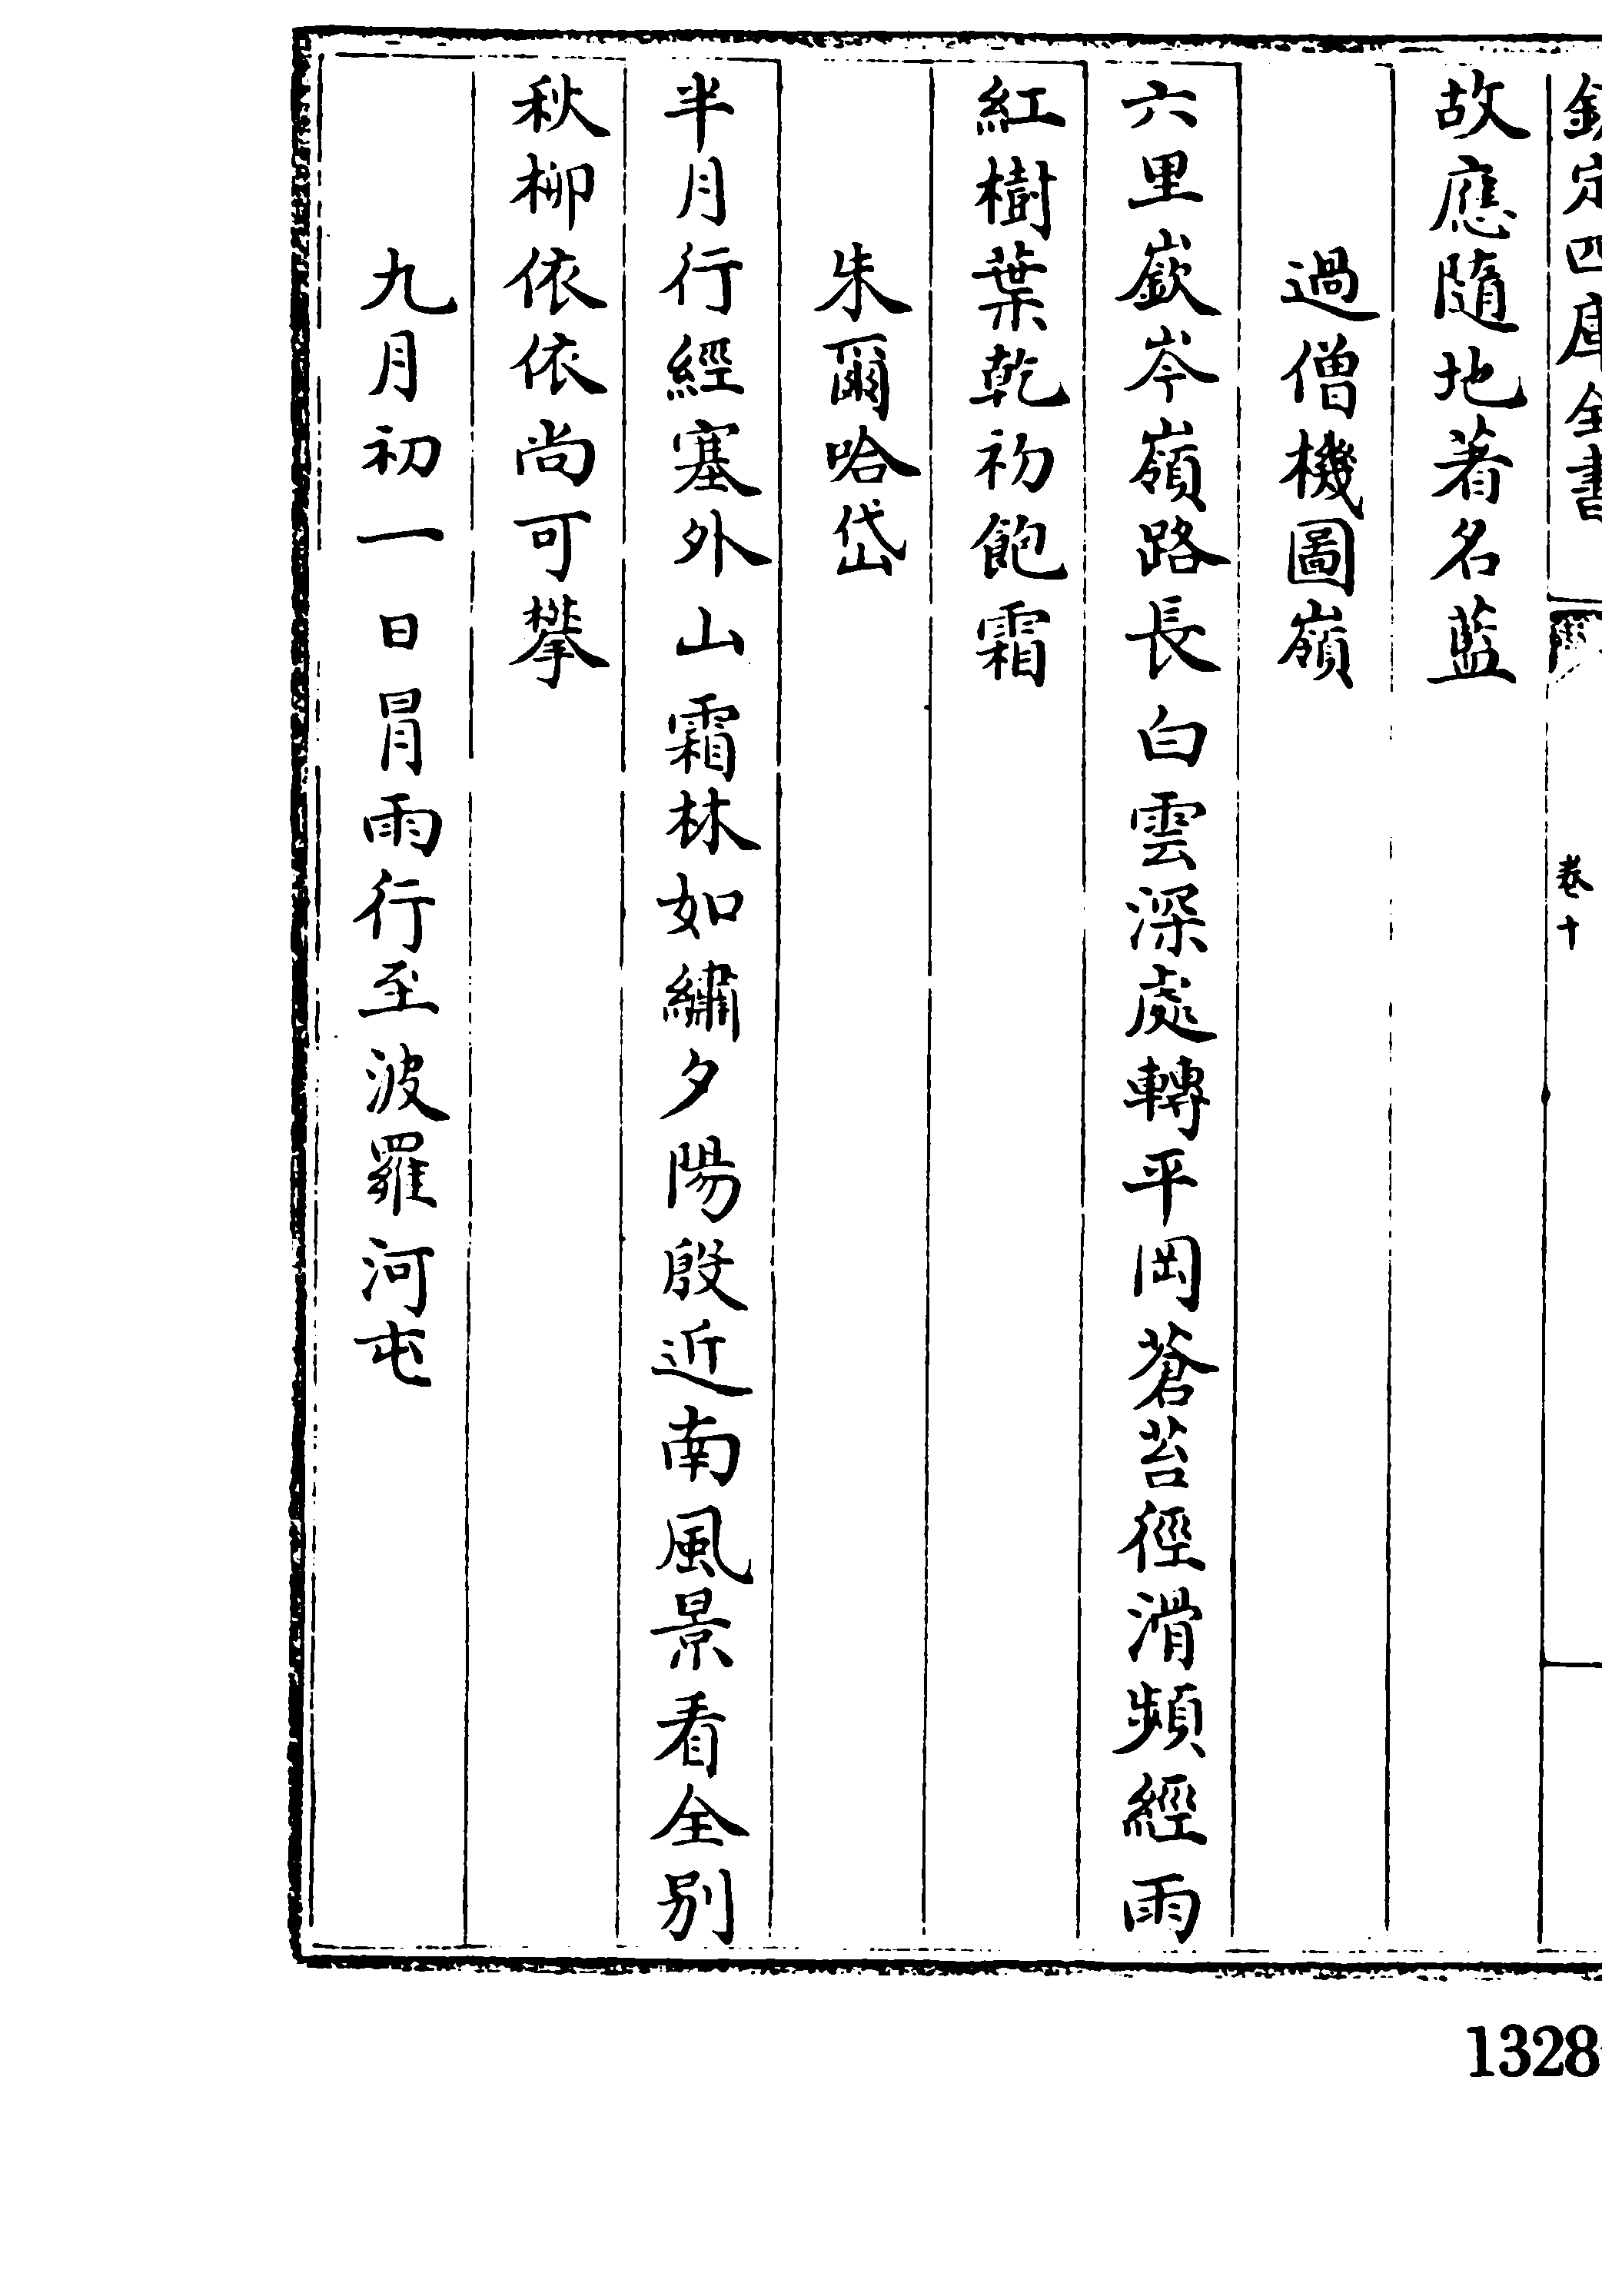 欽定四庫全書
卷十
故應隨地著名藍
過僧機圖嶺
六里嶔岑嶺路長白雲深處轉平岡蒼苔徑滑頻經雨
紅樹葉乾初飽霜
朱爾哈岱
半月行經塞外山霜林如繡夕陽殷近南風景看全別
秋柳依依尚可攀
九月初一日冐雨行至波羅河屯
1328